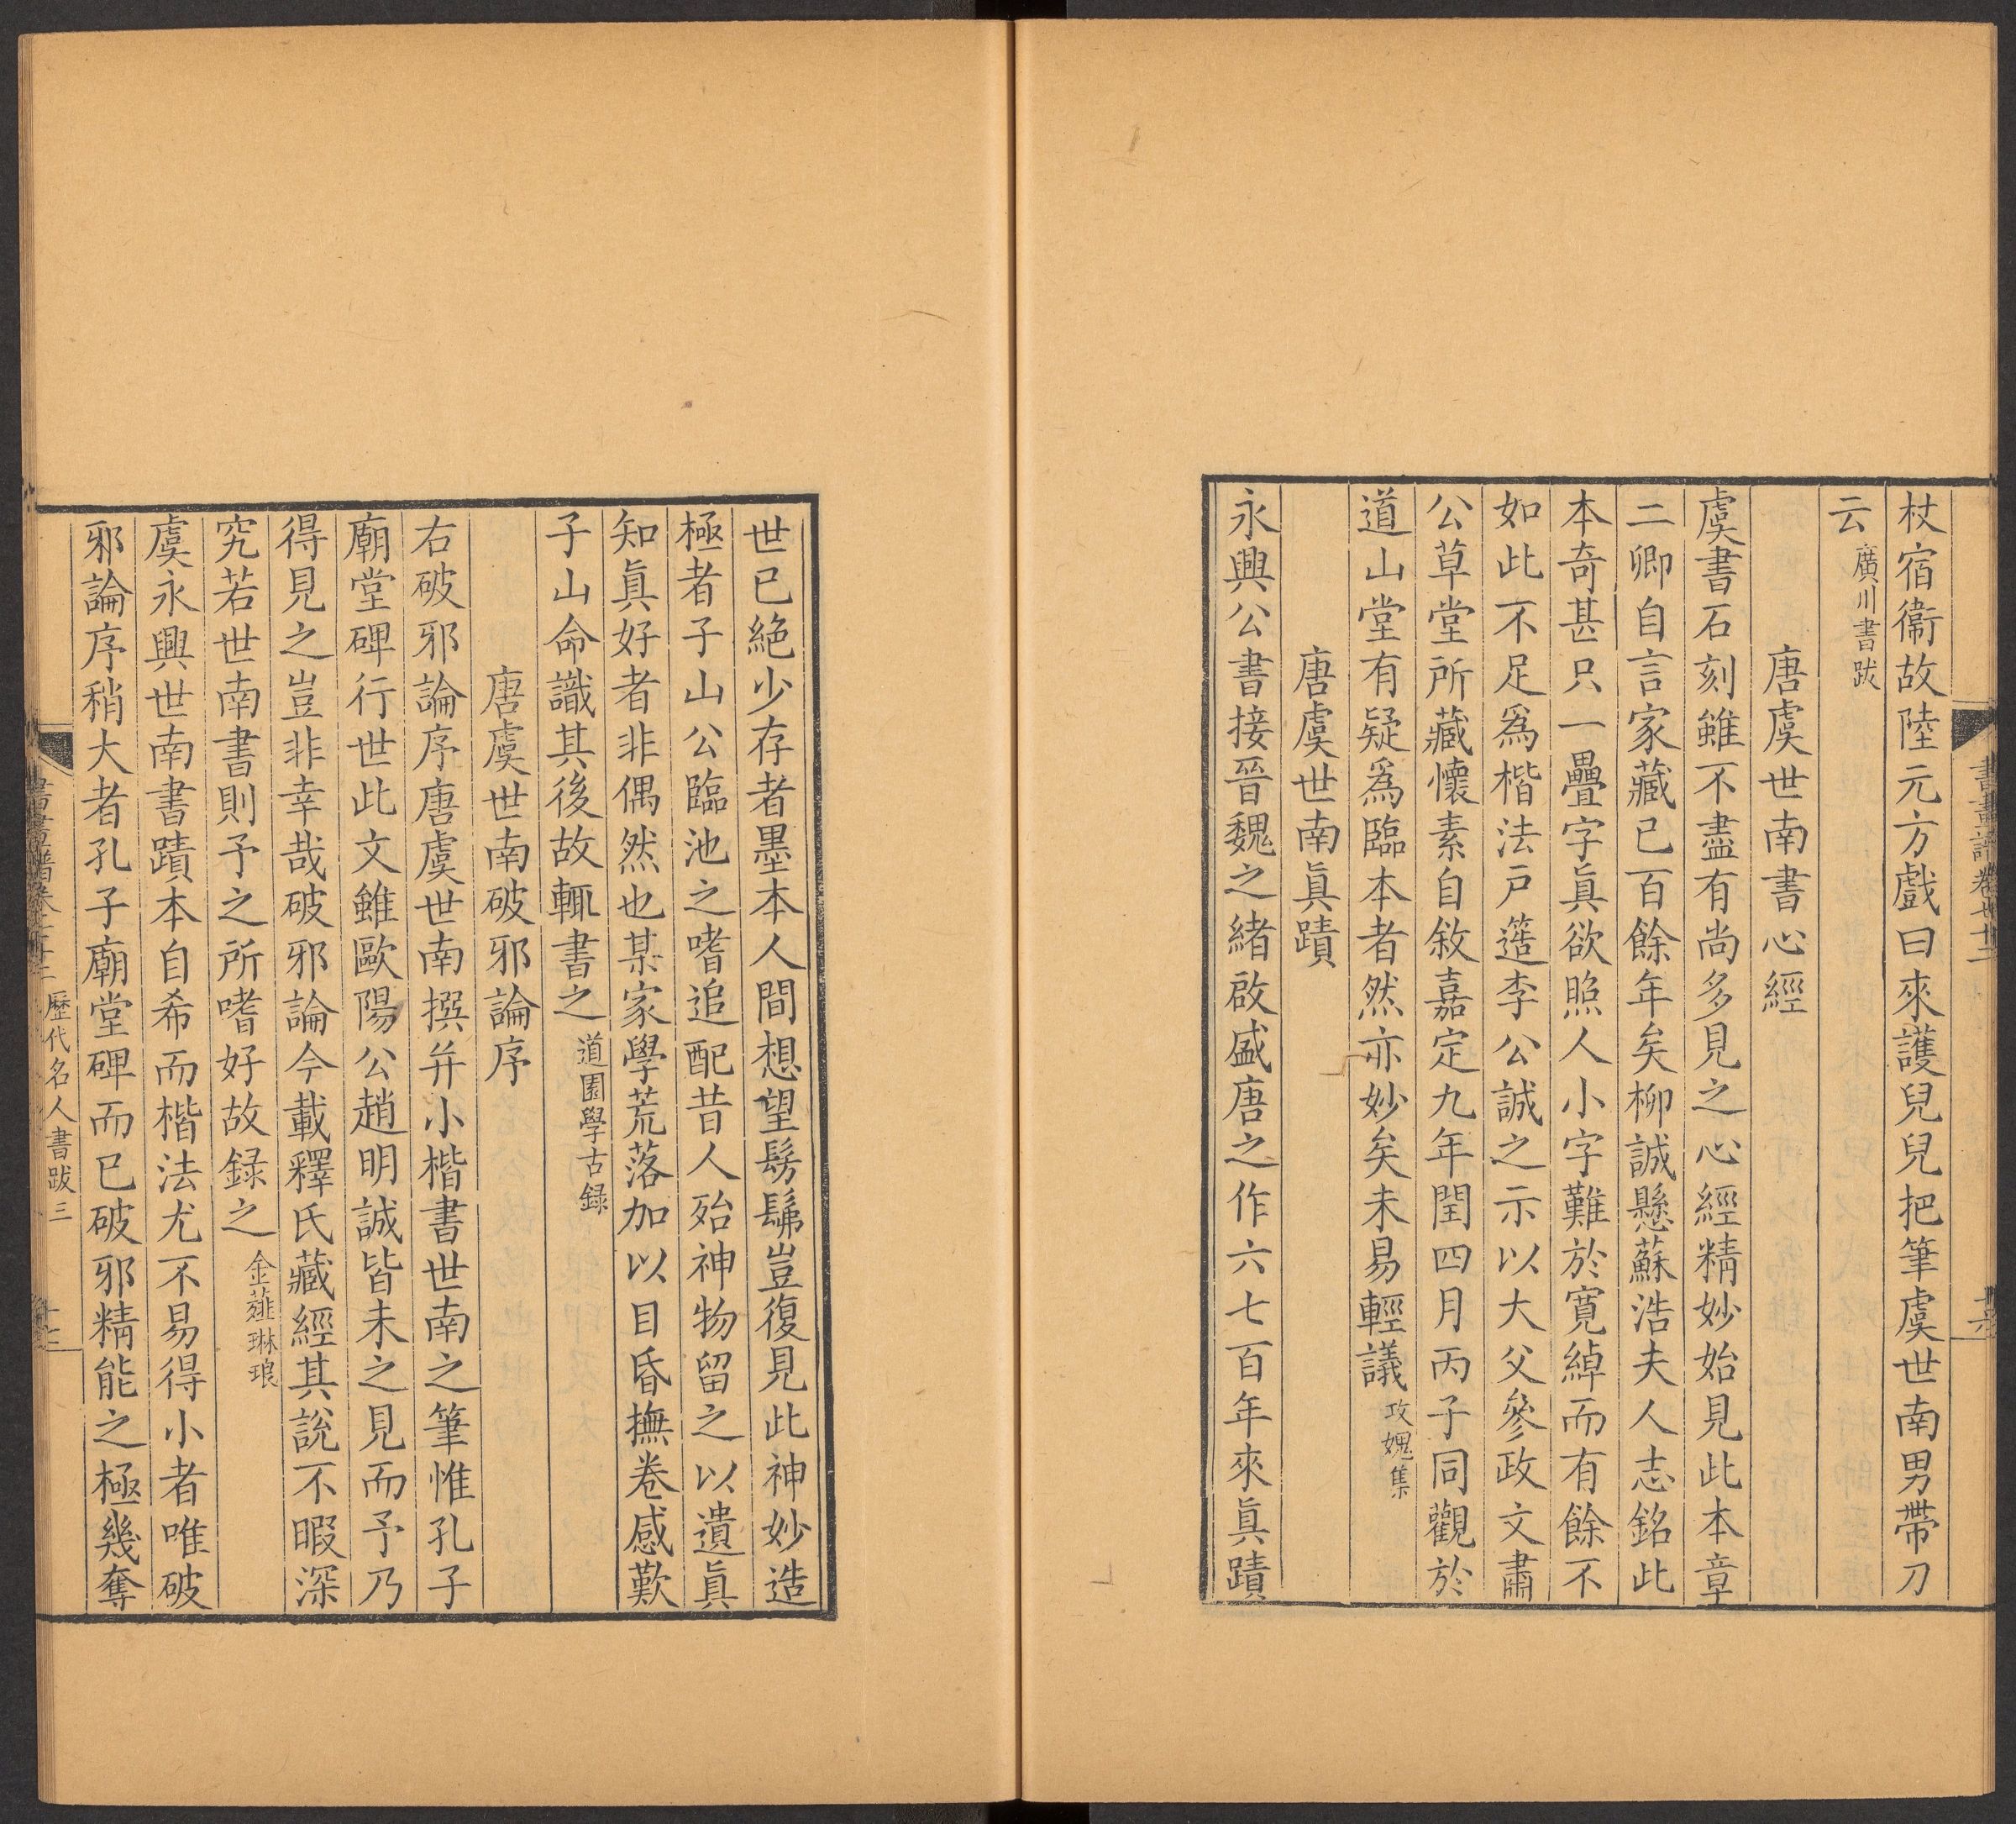 杖宿衞故陸元方戲曰來護兒兒把筆虞世南男帶刀
云廣川書跋
唐虞世南書心經
虞書石刻雖不盡有尚多見之心經精妙始見此本章
二卿自言家藏已百餘年矣柳誠懸蘇浩夫人志銘此
本奇甚只一疊字眞欲照人小字難於寛綽而有餘不
如此不足爲楷法戸簉李公誠之示以大父參政文肅
公草堂所藏懷素自敘嘉定九年閏四月丙子同觀於
道山堂有疑爲臨本者然亦妙矣未易輕議攻媿集
唐虞世南眞蹟
永興公書接晉魏之緒啟盛唐之作六七百年來眞蹟
世已絶少存者墨本人間想望髣髴豈復見此神妙造
極者子山公臨池之嗜追配昔人殆神物留之以遺眞
知眞好者非偶然也某家學荒落加以目昏撫卷感歎
子山命識其後故輒書之道園學古録
唐虞世南破邪論序
右破邪論序唐虞世南撰并小楷書世南之筆惟孔子
廟堂碑行世此文雖歐陽公趙明誠皆未之見而予乃
得見之豈非幸哉破邪論今載釋氏藏經其說不暇深
究若世南書則予之所嗜好故録之金薤琳琅
虞永興世南書蹟本自希而楷法尤不易得小者唯破
邪論序稍大者孔子廟堂碑而已破邪精能之極幾奪
歷代名人書跋三